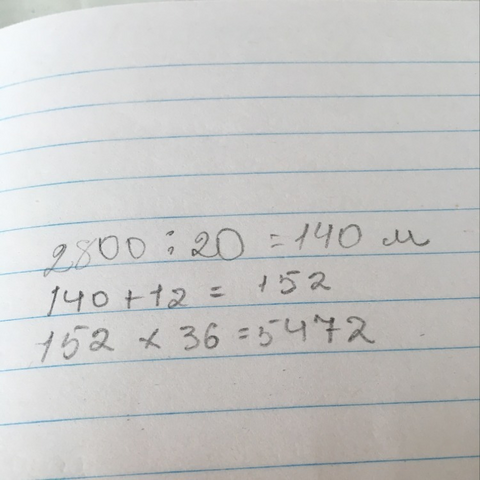 2800 : 20 = 140 м
140 + 12 = 152
152 x 36 = 5472